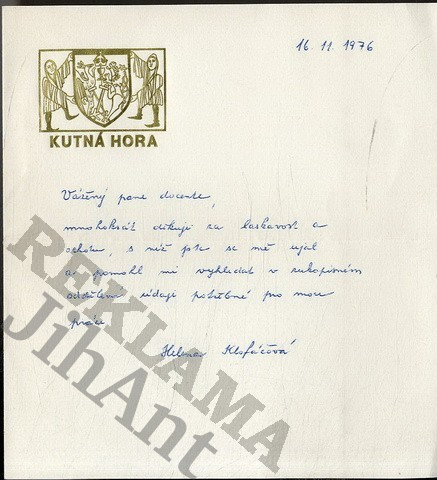 16. 11. 1976
KUTNÁ HORA
Vážený pane docente,
mnohokrát děkuji za laskavost a
ochotu, s níž jste se mě ujal
a pomohl mi vyhledat v rukopisném
oddělení údaje potřebné pro mou
práci.
Helena Klofáčová
REKLAMA
JihAnt